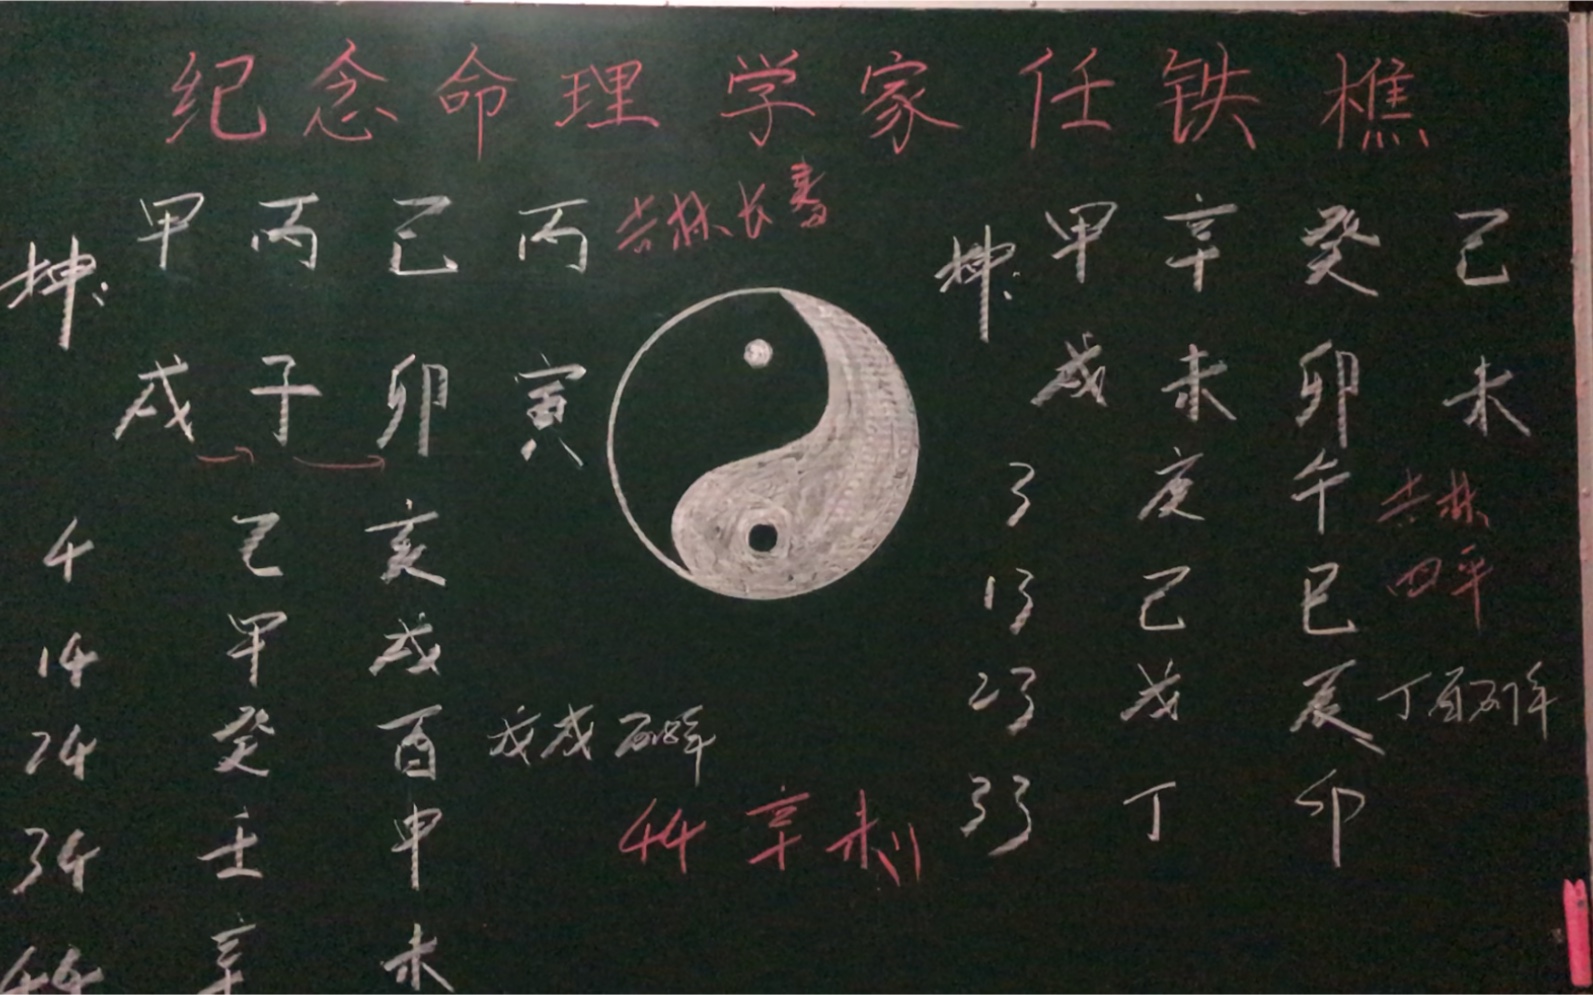 纪念命理学家任铁樵
坤: 甲 丙 己 丙 吉林长春
戌 子 卯 寅
4 乙 亥
14 甲 戌
24 癸 酉 戊戌
34 壬 申
44 辛 未
44 辛未
坤: 甲 辛 癸 己
戌 未 卯 未
3 庚 午 吉林
13 己 巳 四平
23 戊 辰 丁酉
33 丁 卯